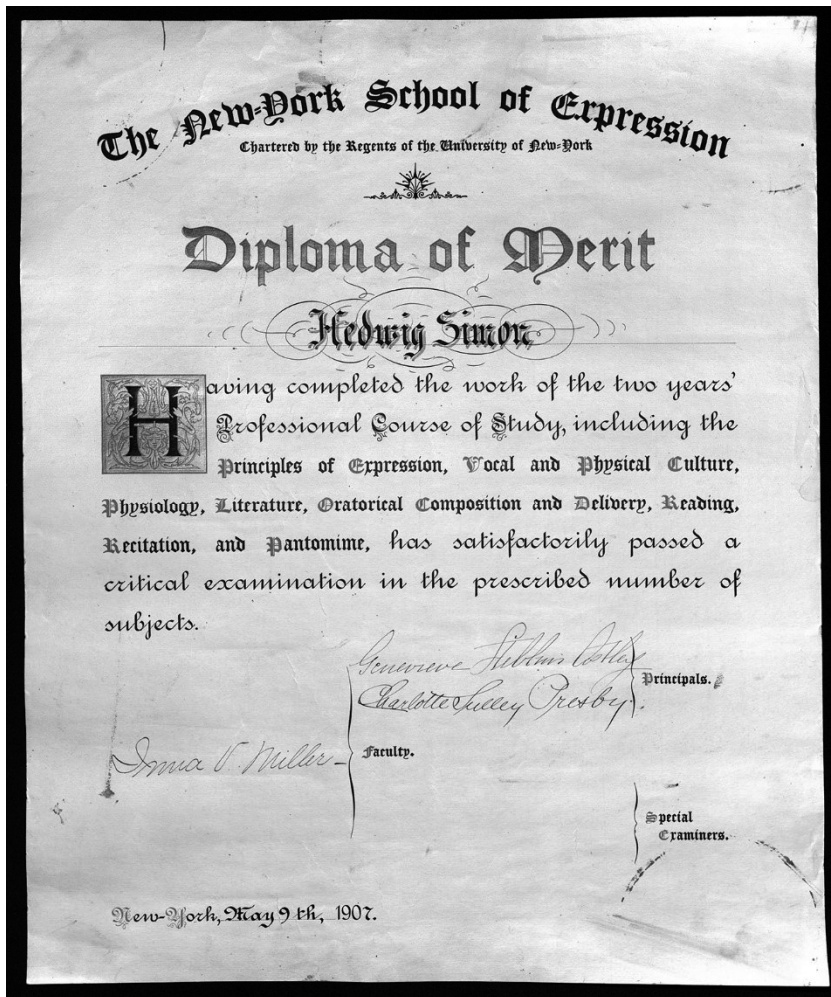 The New-York School of Expression
Chartered by the Regents of the University of New-York
Diploma of Merit
Hedwig Simon
Having completed the work of the two years'
Professional Course of Study, including the
Principles of Expression, Vocal and Physical Culture,
Physiology, Literature, Oratorical Composition and Delivery, Reading,
Recitation, and Pantomime, has satisfactorily passed a
critical examination in the prescribed number of
subjects.
Genevieve Stebbins Astley
Charlotte Sulley Presby.
Principals.
Inna V. Miller
Faculty.
Special
Examiners.
New-York, May 9th, 1907.